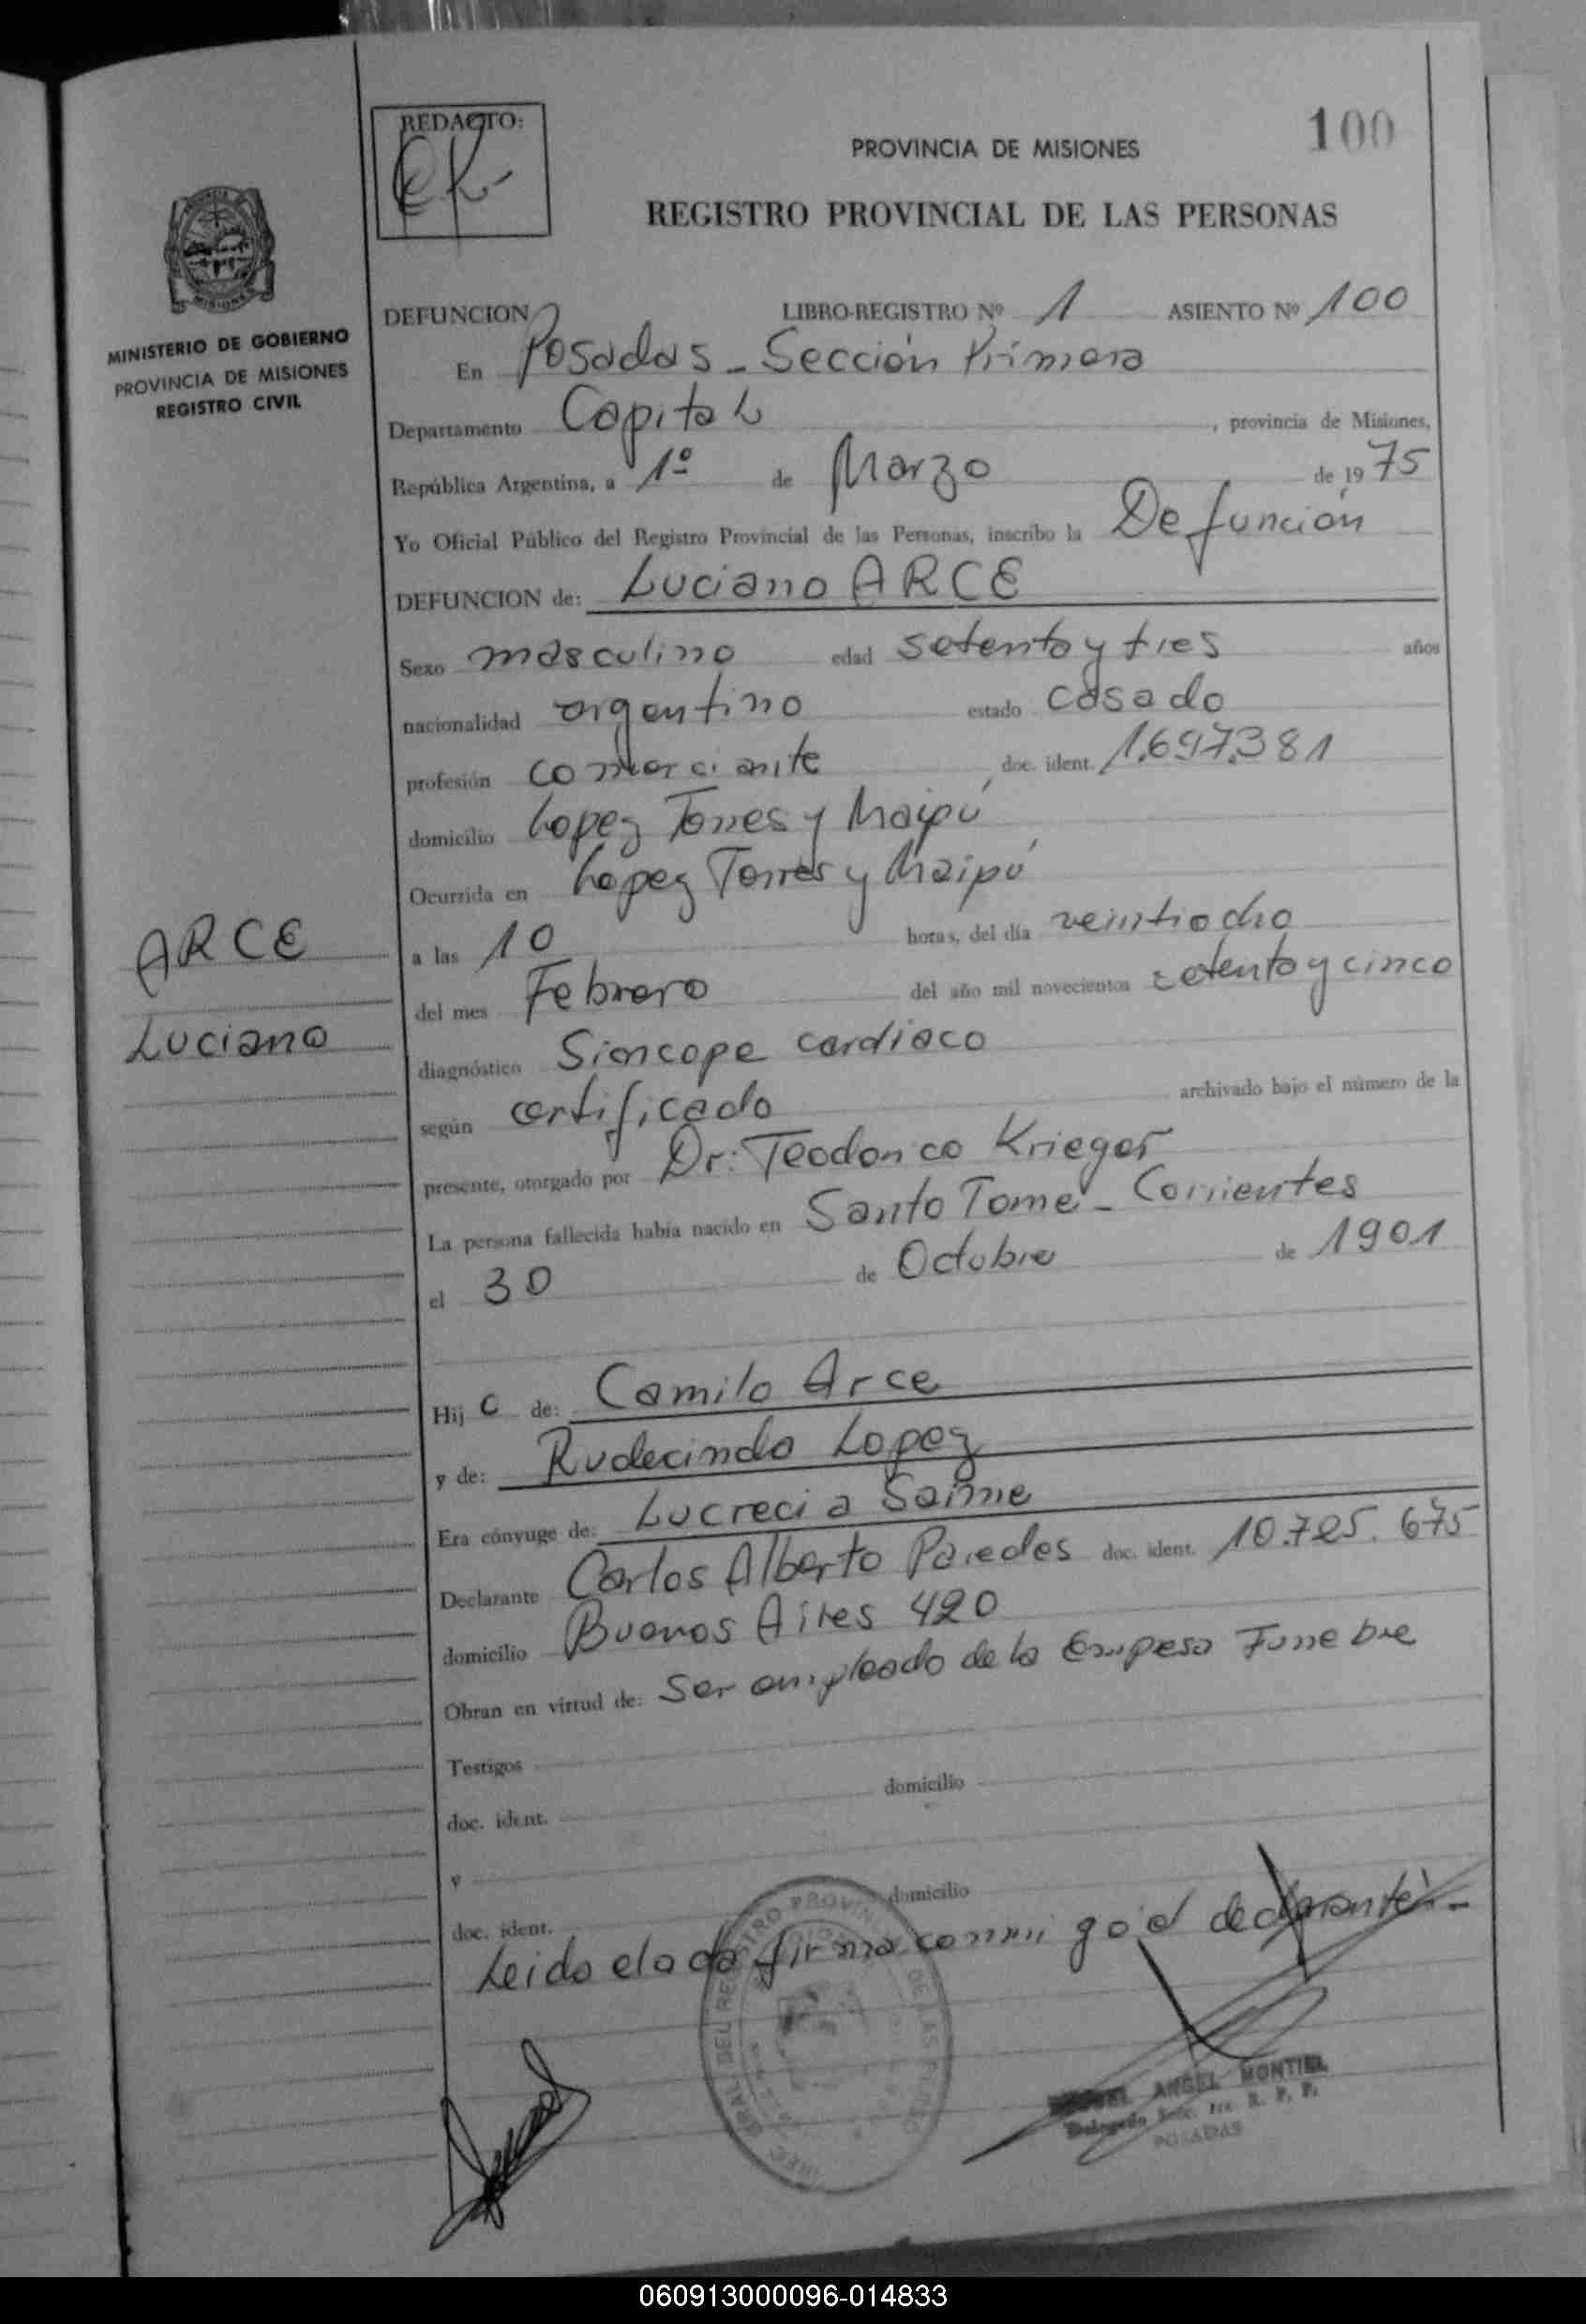 REDACTO:
100
PROVINCIA DE MISIONES
REGISTRO PROVINCIAL DE LAS PERSONAS
MINISTERIO DE GOBIERNO
PROVINCIA DE MISIONES
REGISTRO CIVIL
DEFUNCION LIBRO-REGISTRO Nº 1 ASIENTO Nº 100
En Posadas - Sección Primera
Departamento Capital, provincia de Misiones,
República Argentina, a 1º de Marzo de 1975
Yo Oficial Público del Registro Provincial de las Personas, inscribo la Defunción
DEFUNCION de: Luciano ARCE
Sexo masculino edad setenta y tres años
nacionalidad argentino estado casado
profesión comerciante doc. ident. 1.697.381
domicilio Lopez Torres y Maipú
Ocurrida en Lopez Torres y Maipú
ARCE
Luciano
a las 10 horas, del día veintiocho
del mes Febrero del año mil novecientos setenta y cinco
diagnóstico Sincope cardiaco
según certificado archivado bajo el número de la
presente, otorgado por Dr: Teodorico Krieger
La persona fallecida había nacido en Santo Tomé - Corrientes
el 30 de Octubre de 1901
Hijo de: Camilo Arce
y de: Rudecinda Lopez
Era cónyuge de: Lucrecia Saime
Declarante Carlos Alberto Paredes doc. ident. 10.725.675
domicilio Buenos Aires 420
Obran en virtud de: Ser empleado de la Empesa Funebre
Testigos
doc. ident. domicilio
y
doc. ident. domicilio
Leida el acta firma conmigo el declarante.-
ANGEL MONTIEL
Delegado Secc. 1ra. R. P. P.
POSADAS
060913000096-014833